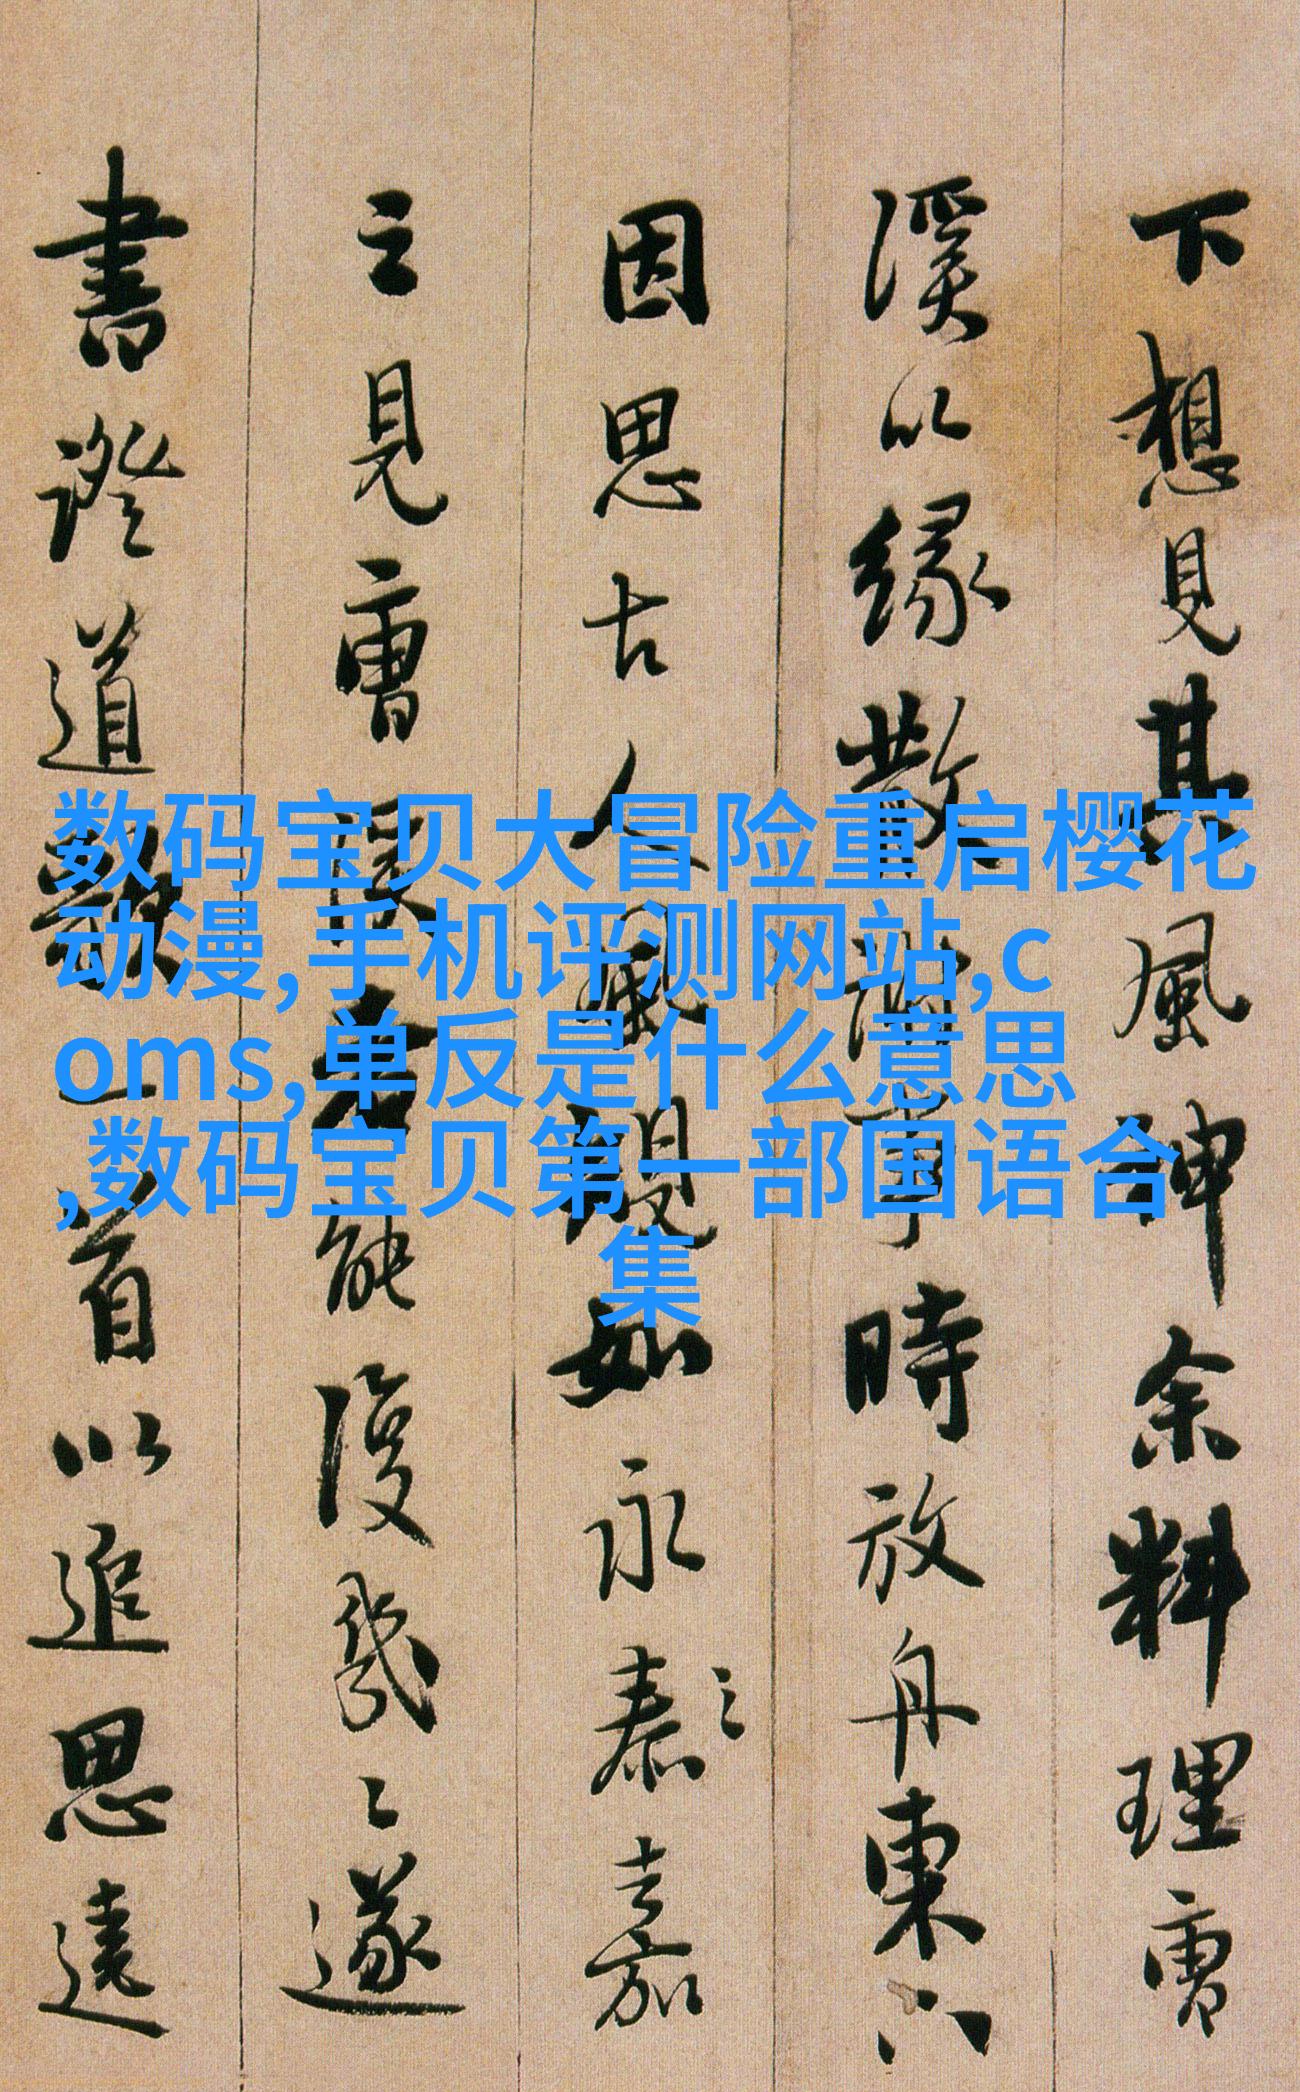 下想見其風神余料理雪
溪以緣散事時放舟東
因思古人風規如永泰之嘉
之見雪溪能復幾遂
書證道歌一首以追思遠
数码宝贝大冒险重启樱花
动漫,手机评测网站,c
oms,单反是什么意思
,数码宝贝第一部国语合
集